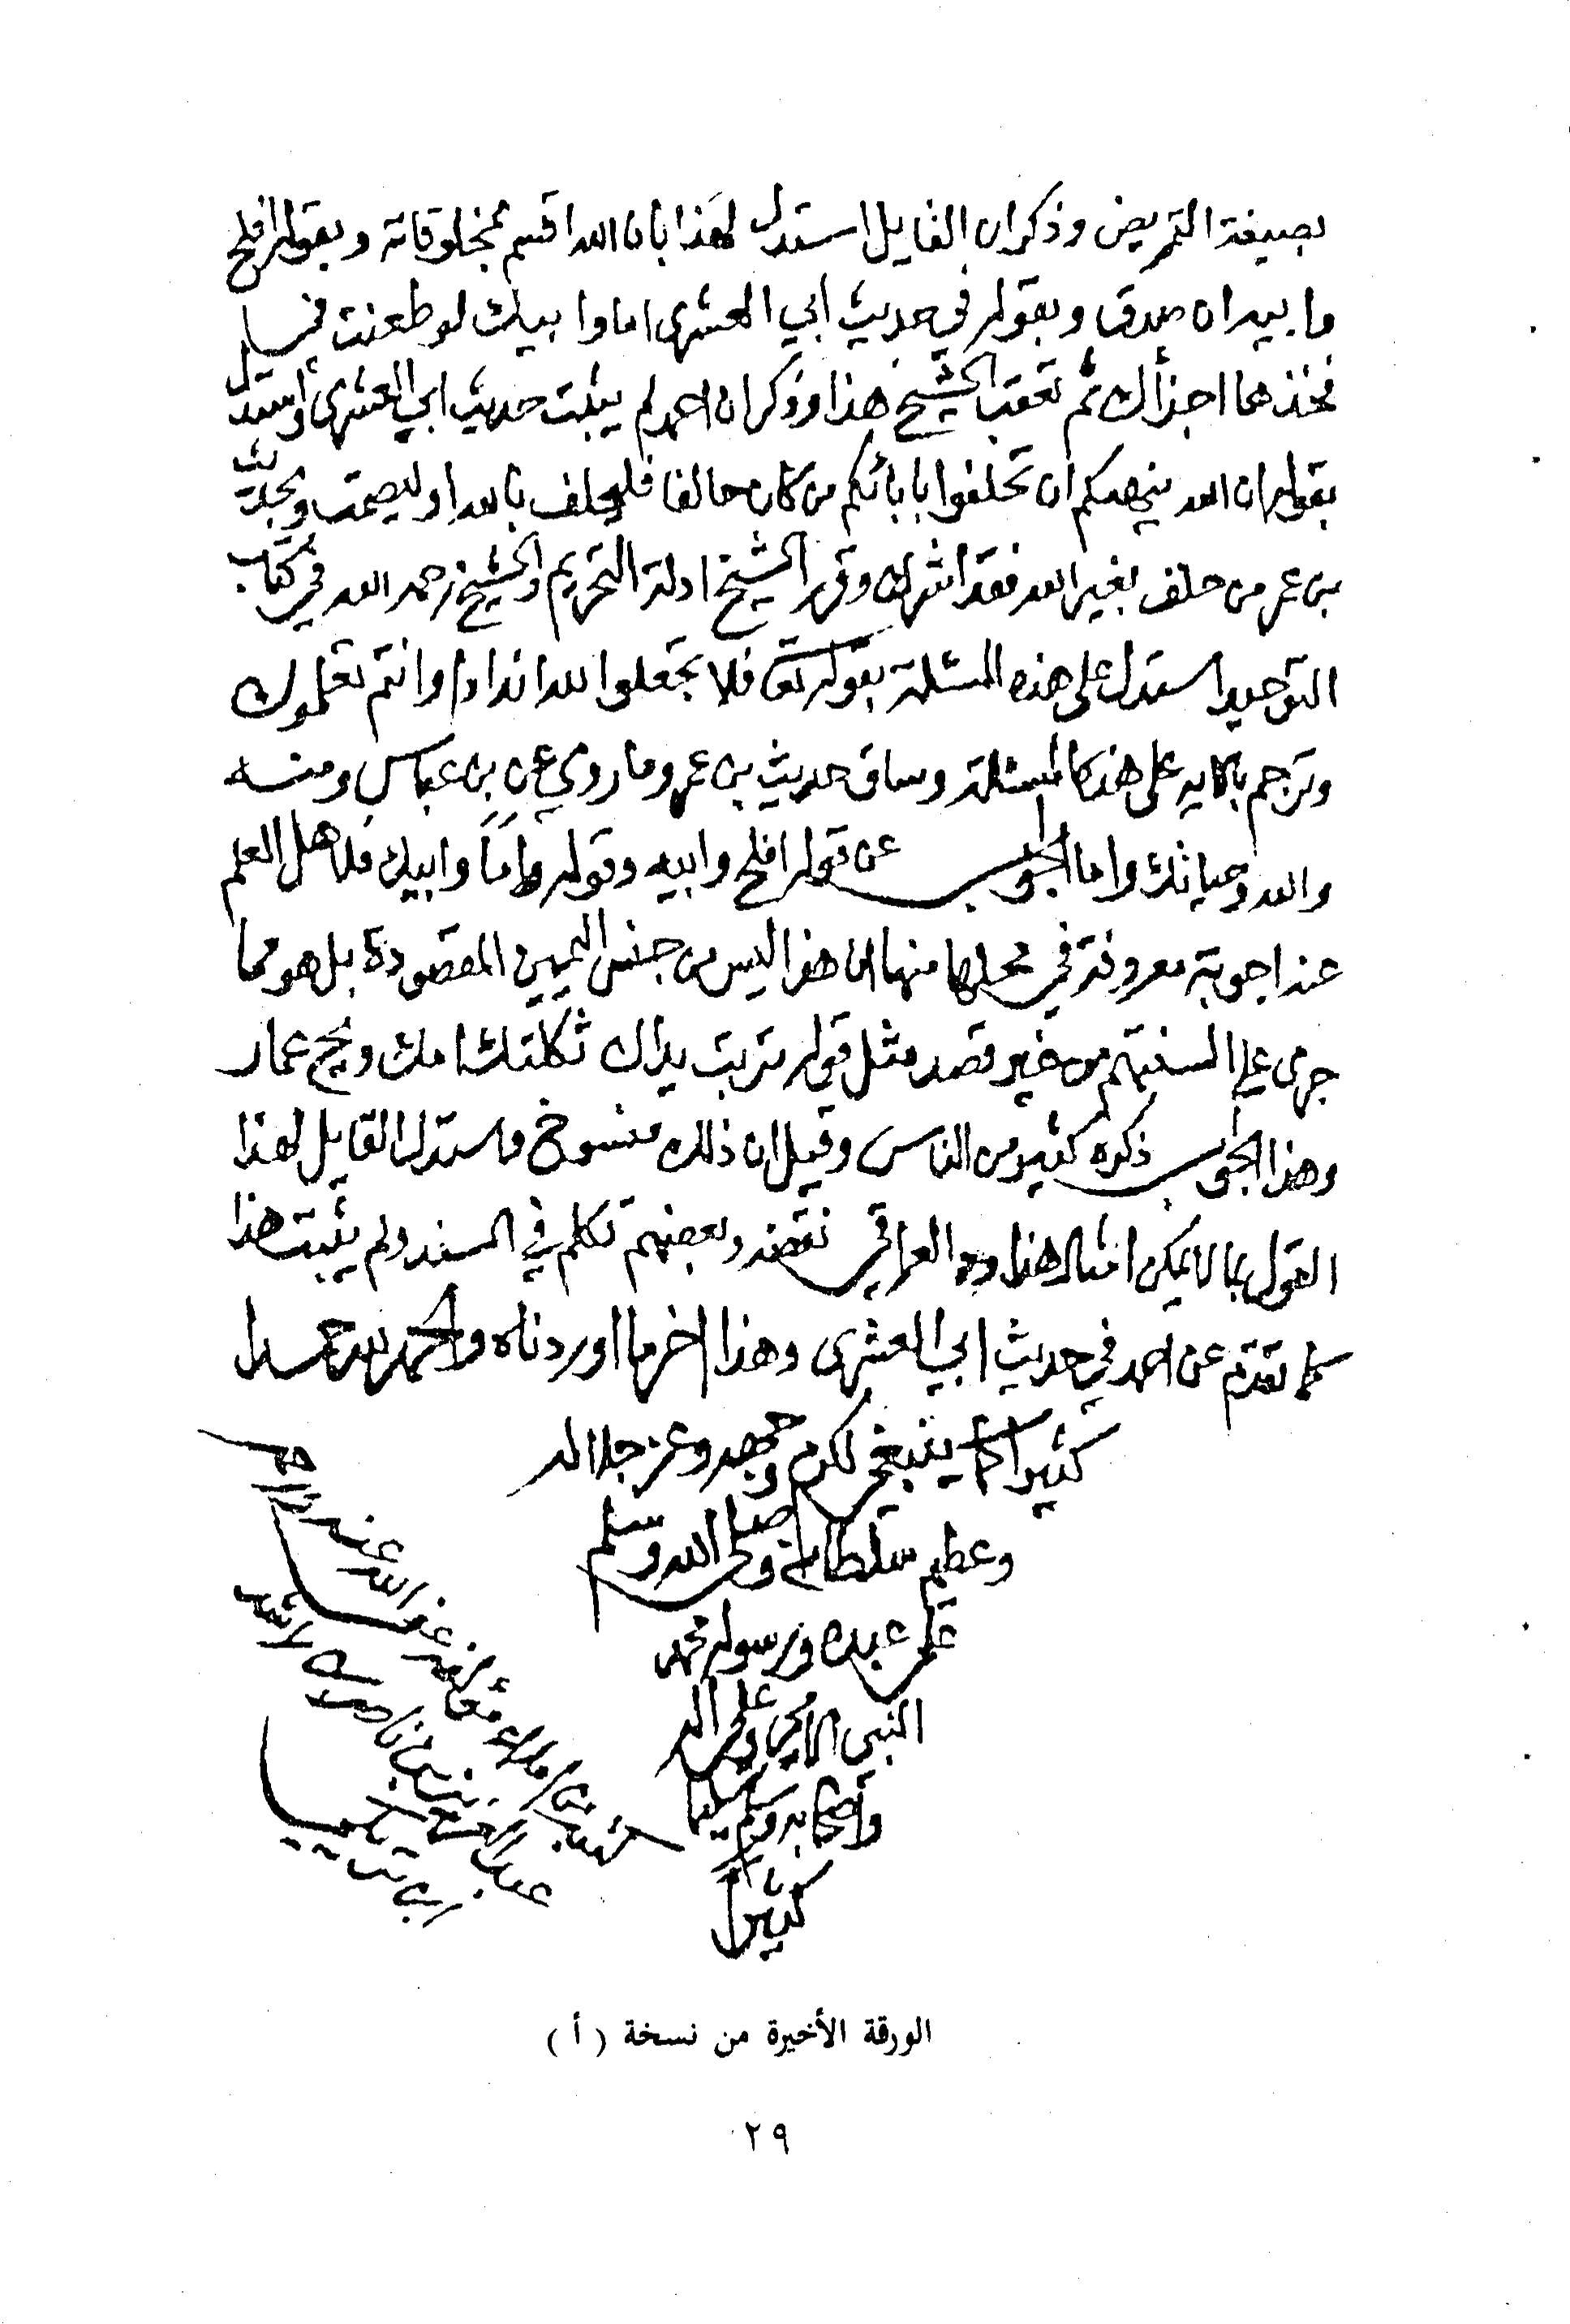 بصيغة التمريض وذكر ان القايل استدل لهذا بان الله اقسم بمخلوقاته وبقوله افلح
وابيه ان صدق وبقوله في حديث ابي العشرى اما وابيك لو طعنت في
فخذها اجزأك ثم تعقب الشيخ هذا وذكر ان احمد لم يثبت حديث ابي العشرى واستدل
بقوله ان الله ينهاكم ان تحلفوا بابائكم من كان حالفا فليحلف بالله او ليصمت وبحديث
بن عمر من حلف بغير الله فقد اشرك وقرر الشيخ ادلة التحريم والشيخ رحمه الله في كتاب
التوحيد استدل على هذه المسئلة بقوله تعا فلا تجعلوا لله اندادا وانتم تعلمون
وترجم بالايه على هذه المسئلة وساق حديث بن عمر وما روي عن بن عباس ومنه
والله وحياتك واما الجواب عن قوله افلح وابيه وقوله واما وابيك فلاهل العلم
عنه اجوبة معروفة في محلها منها ان هذا ليس من جنس اليمين المقصودة بل هو مما
جرى على السنتهم من غير قصد مثل قوله تربت يداك ثكلتك امك ويح عمار
وهذا الجواب ذكره كثير من الناس وقيل ان ذلك منسوخ واستدل القايل لهذا
القول بما لا يمكن هنا العراقي نقضه وبعضهم تكلم في المسند ولم يثبت هذا
كما تقدم عن احمد في حديث ابي العشرى وهذا اخر ما اوردناه والحمد لله حمدا
كثيرا كما ينبغي لكرم وجهه وعز جلاله
وعظيم سلطانه وصلى الله وسلم
على عبده ورسوله محمد
النبي الامي وعلى اله
واصحابه وسلم تسليما
كثيرا
الورقة الأخيرة من نسخة ( أ )
٢٩